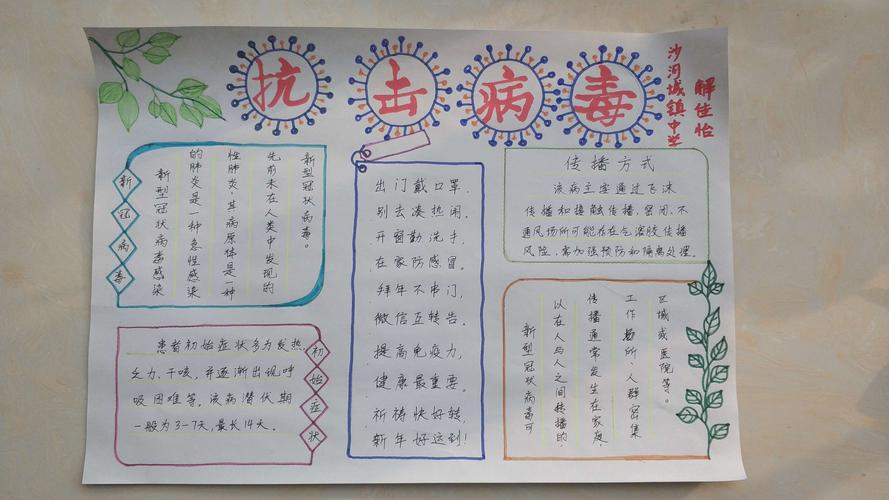 抗击病毒
沙河城镇中学
解佳怡
新冠病毒
新型冠状病毒感染
的肺炎是一种急性感染
性肺炎,其病原体是一种
先前未在人类中发现的
新型冠状病毒。
初始症状
患者初始症状多为发热、
乏力、干咳,并逐渐出现呼
吸困难等,该病潜伏期
一般为3-7天,最长14天。
出门戴口罩,
别去凑热闹。
开窗勤洗手,
在家防感冒。
拜年不串门,
微信互转告。
提高免疫力,
健康最重要。
祈祷快好转,
新年好运到!
传播方式
该病主要通过飞沫
传播和接触传播,密闭、不
通风场所可能存在气溶胶传播
风险,需加强预防和隔离处理。
新型冠状病毒可
以在人与人之间传播的,
传播通常发生在家庭、
工作场所、人群密集
区域或医院等。